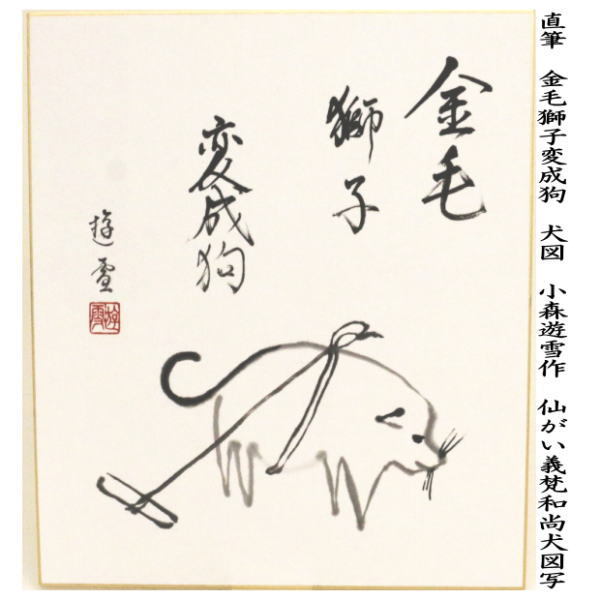 直筆 金毛獅子変成狗 犬図 小森遊雪作 仙がい義梵和尚犬図写
金毛
獅子
変成狗
遊雪